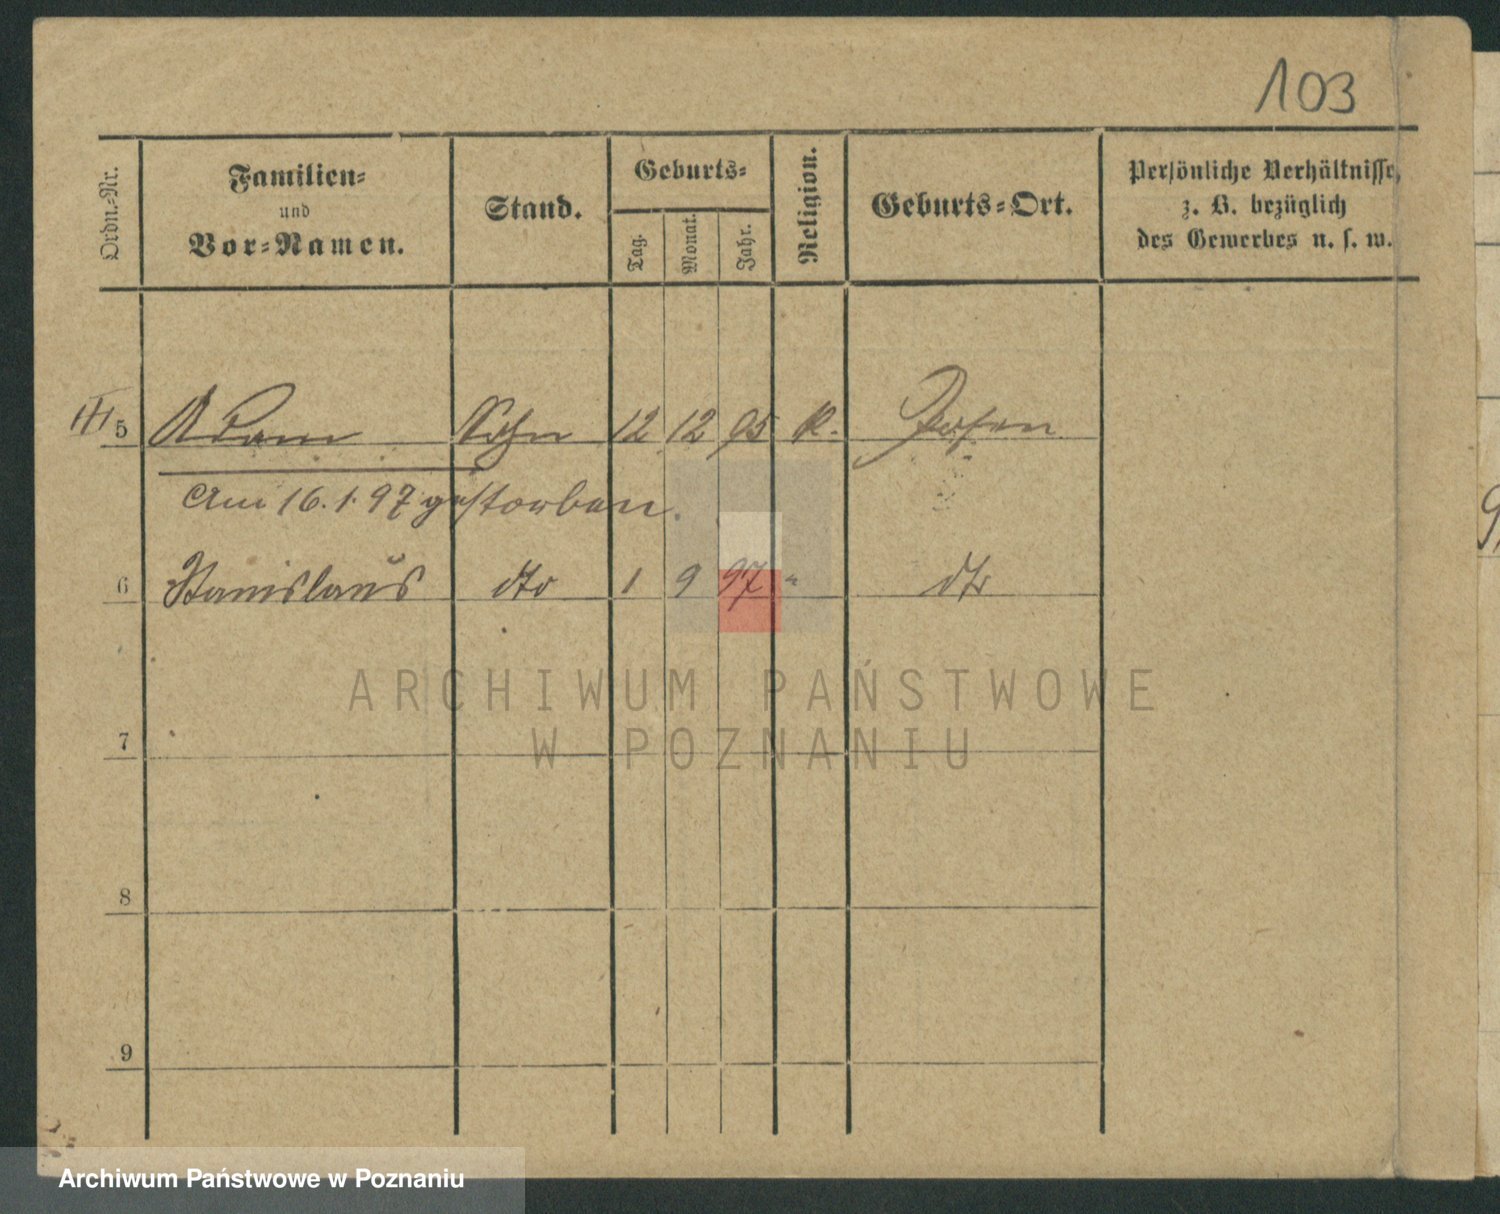 103
Ordn.-Nr.
Familien-
und
Vor-Namen.
Stand.
Geburts-
Tag.
Monat.
Jahr.
Religion.
Geburts-Ort.
Persönliche Verhältnisse,
z. B. bezüglich
des Gewerbes u. s. w.
5 Adam Sohn 12 12 95 K. Posen
Am 16. 1. 97 gestorben.
6 Stanislaus dto 1 9 97 " dto
ARCHIWUM PAŃSTWOWE
W POZNANIU
7
8
9
Archiwum Państwowe w Poznaniu